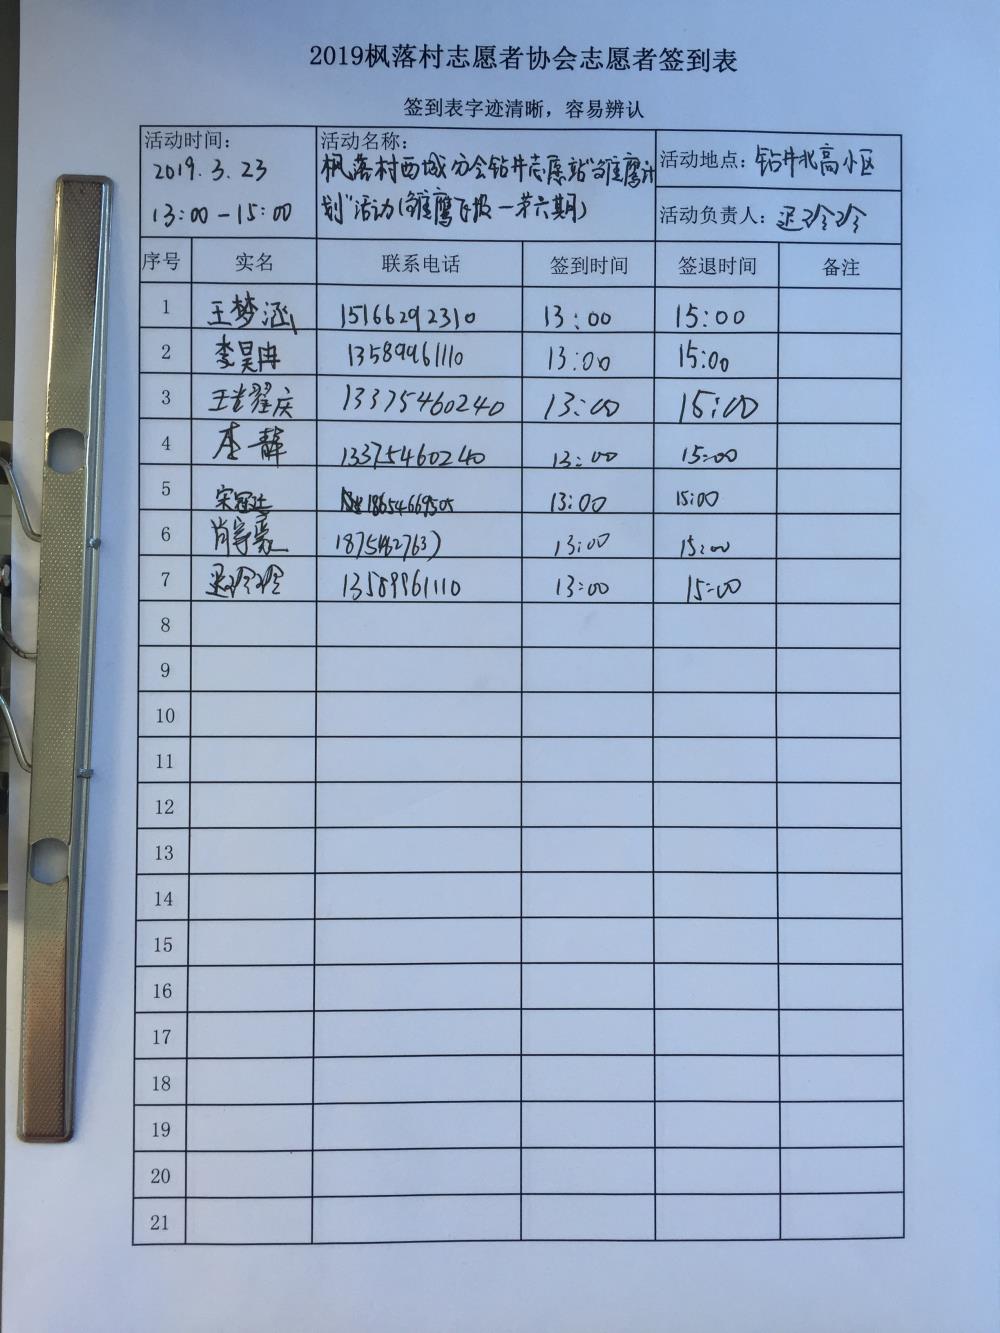 2019枫落村志愿者协会志愿者签到表
签到表字迹清晰，容易辨认
活动时间：
2019.3.23
13:00-15:00
活动名称：
枫落村西城分会钻井志愿站"雏鹰计
划"活动(雏鹰飞报一第六期)
活动地点：钻井北高小区
活动负责人：迟玲玲
序号 实名 联系电话 签到时间 签退时间 备注
1 王梦涵 15166292310 13:00 15:00
2 李昊冉 13589961110 13:00 15:00
3 庆 13375460240 13:00 15:00
4 李静 13375460240 13:00 15:00
5 宋冠 18654669505 13:00 15:00
6 肖豪 13:00 15:00
7 迟玲玲 13589961110 13:00 15:00
8
9
10
11
12
13
14
15
16
17
18
19
20
21